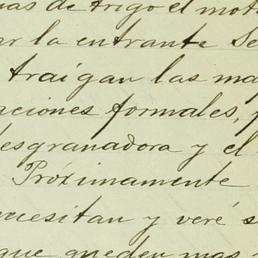 nas de trigo el mot
ar la entrante Se
traigan las ma
aciones formales, p
desgranadora y el
Próximamente
necesitan y veré s
que queden mas